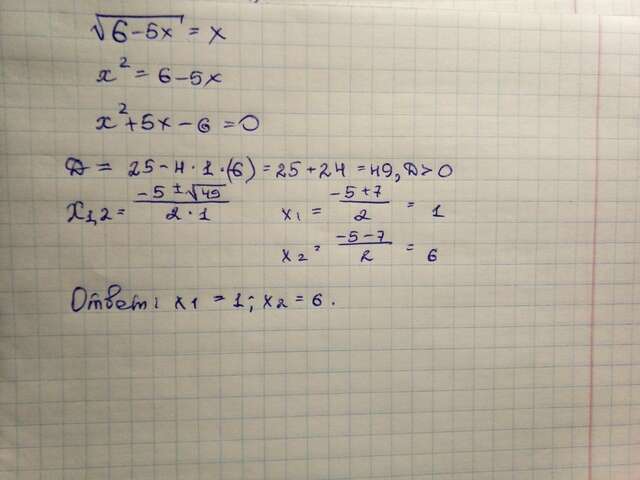 √6-5x = x
x² = 6-5x
x²+5x-6=0
D = 25-4·1·(6)=25+24=49, D>0
X1,2= -5±√49 / 2·1 x1 = -5+7 / 2 = 1
x2 = -5-7 / 2 = 6
Ответ: x1 = 1; x2 = 6.